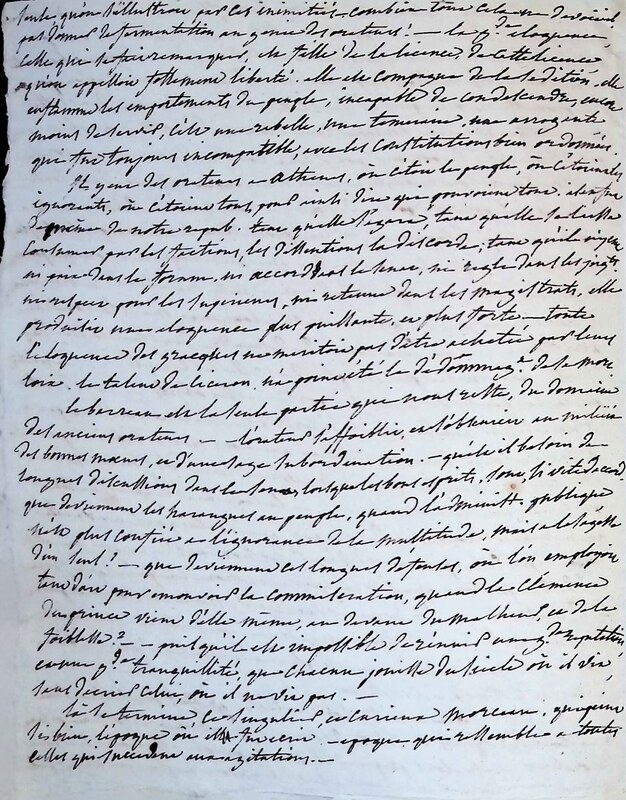 foule, qu'on s'illustroit par ces inimitiés – combien tout cela ne devoit
pas donner de fermentation au génie des orateurs! – la gde éloquence,
celle qui se fait remarquer, est fille de la licence, de cette licence
qu'on appelloit follement liberté. elle est compagne de la sédition, elle
enflamme les emportements du peuple, incapable de condescendre, encor
moins de servir, c'est une rebelle, une temeraire, une arrogante
qui fut toujours incompatible, avec les constitutions bien ordonnées.
Il y eut des orateurs a Athenes, où c'étoit le peuple, où c'étoient les
ignorants, où c'étoient tous, pour ainsi dire qui pouvoient tout. il en fut
de même de notre repub. tant qu'elle s'egara, tant qu'elle se laissa
consumer par les factions, les dissentions la discorde; tant qu'il n'y eut
ni paix dans le forum, ni accord dans le senat, ni regle dans les jugts
ni respect pour les superieurs, ni retenue dans les magistrats, elle
produisit une eloquence plus puissante, et plus forte – toute
l'eloquence des gracques ne meritoit pas d'être achetée par leurs
loix. le talent de ciceron n'a point été le dédommagt de sa mort
le barreau est la seule partie qui nous reste, du domaine
des anciens orateurs – l'orateur s'affoiblit, et s'obscurcit au milieu
des bonnes mœurs, et d'une sage subordination. – qu'est il besoin de
longues discussions dans le senat lorsque les bons esprits, sont si vite d'accord
que deviennent les harangues au peuple, quand l'administ. publique
n'est plus confiée a l'ignorance de la multitude, mais a la sagesse
d'un seul? – que deviennent ces longues defenses, où l'on employoit
tant d'art pour emouvoir la commiseration, quand la clemence
du prince vient d'elle même, au devant du malheur, et de la
foiblesse? – puisqu'il est impossible de réunir une gde reputation
et une gde tranquillité, que chacun jouisse du siecle où il vit,
sans decrier celui, où il ne vit pas. –
Là se termine, ce singulier, et curieux morceau, qui peint
si bien, l'epoque où il fut ecrit – epoque qui ressemble a toutes
celles qui succedent aux agitations. –